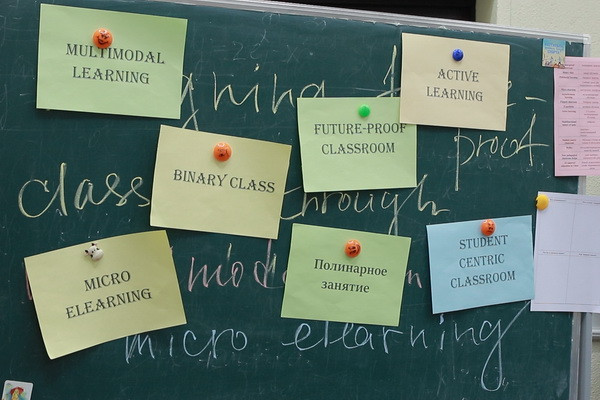 MULTIMODAL
LEARNING
ACTIVE
LEARNING
FUTURE-PROOF
CLASSROOM
BINARY CLASS
proof
class through
MICRO
ELEARNING
Полинарное
занятие
STUDENT
CENTRIC
CLASSROOM
micro elearning